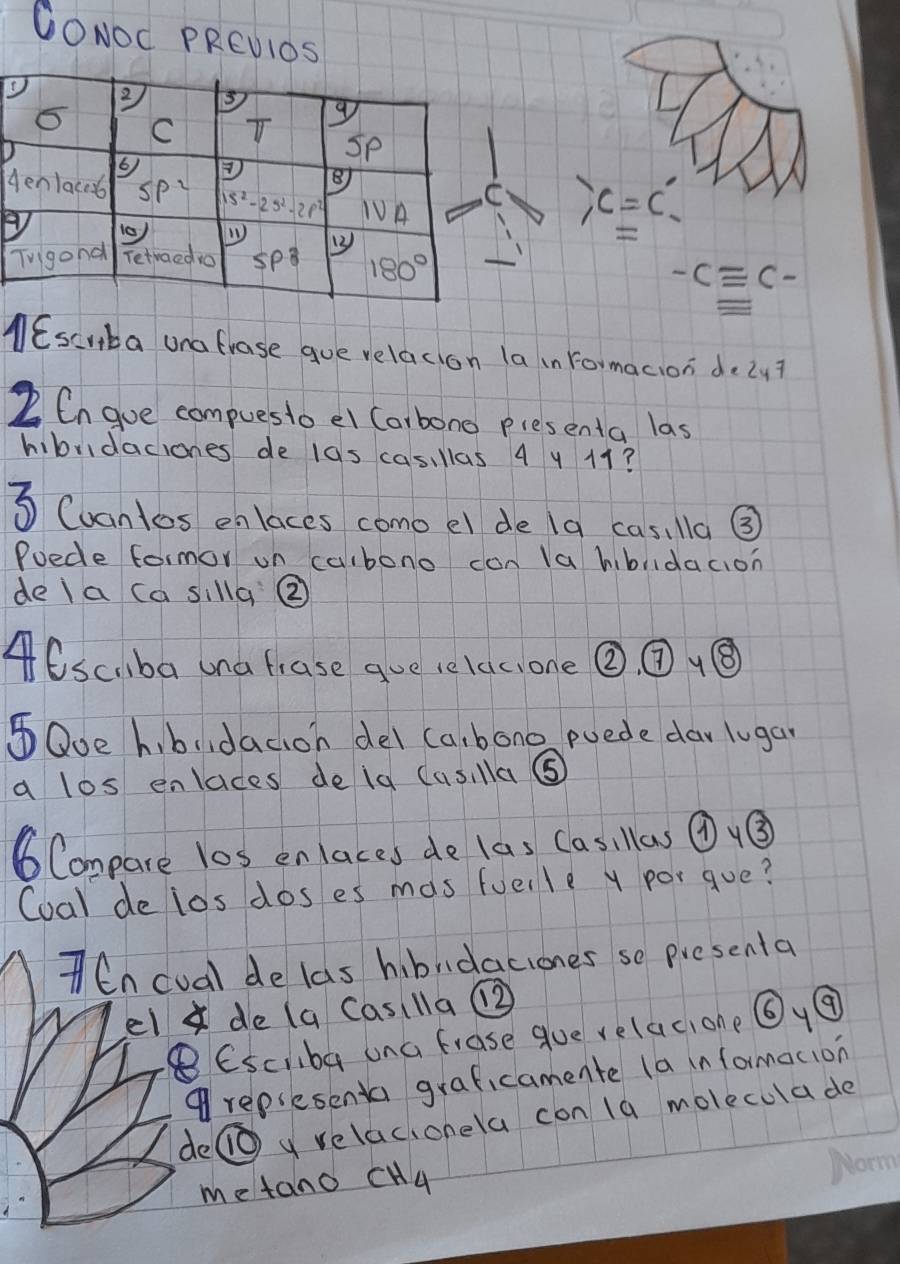 CONOC PREVIOS
1) 2) 3) 4)
σ C π SP
4enlaces 6) SP² 7) 1S²-2S²-2P² 8) IVA
9) Trigonal 10) Tetraedro 11) SP3 12) 180°
C
C=C
-C≡C-
1 Escriba una frase que relacion la informacion de 2 y 7
2 En que compuesto el Carbono presenta las
hibridaciones de las casillas 4 y 11?
3 Cuantos enlaces como el de la casilla ③
Puede formar un carbono con la hibridación
de la casilla ②
4 Escriba una frase que relacione ②, ⑦ y ⑧
5 Que hibridación del Carbono puede dar lugar
a los enlaces de la casilla ⑤
6 Compare los enlaces de las Casillas ① y ③
Cual de los dos es mas fuerte y por que?
7 En cual de las hibridaciones se presenta
el ∡ de la Casilla ⑫
8 Escriba una frase que relacione ⑥ y ⑨
9 representa graficamente la informacion
de ⑩ y relacionela con la molecula de
metano CH4
Norm